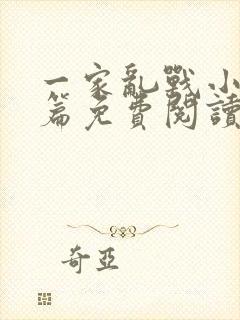 一家亂戰小
篇免費閱讀
奇亞